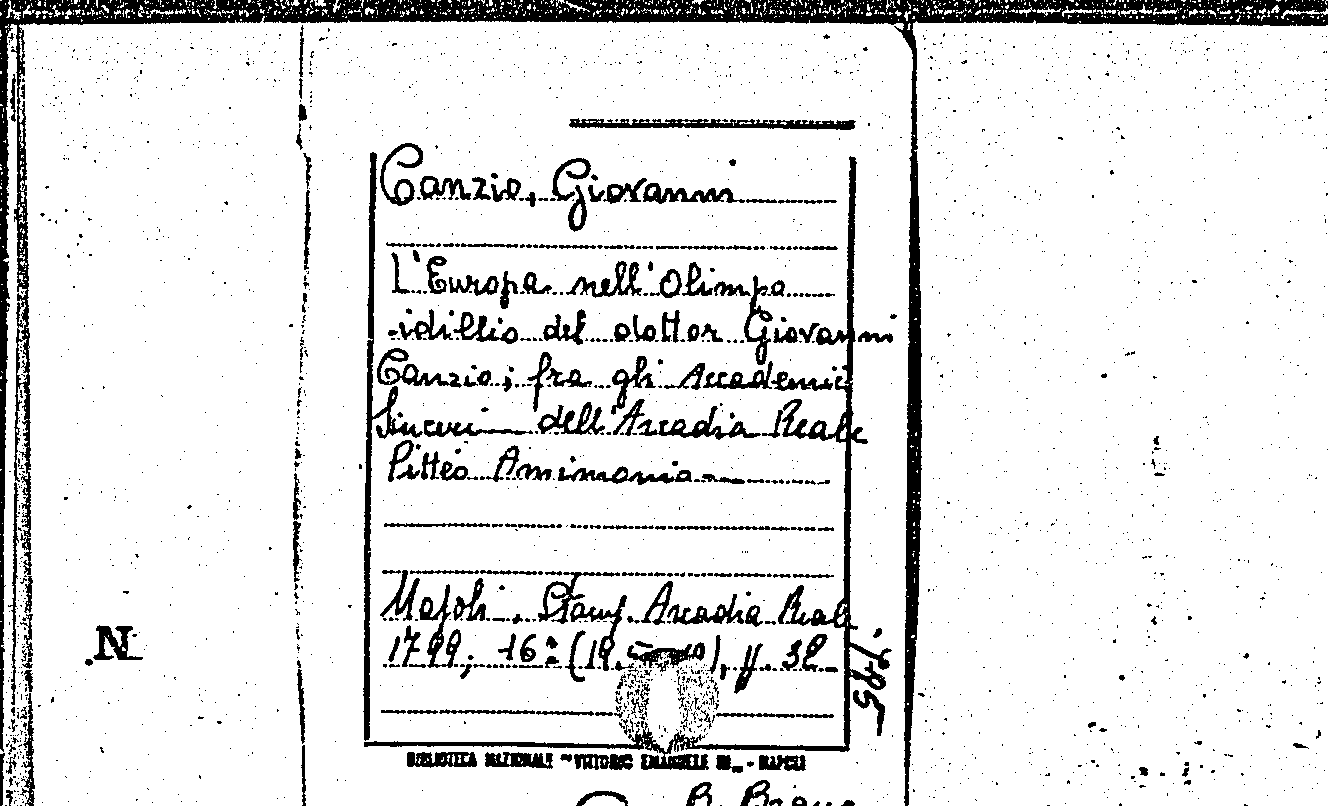 Canzio, Giovanni
L'Europa nell'Olimpo
-idillio del dottor Giovanni
Canzio; fra gli Accademici
Sinceri dell'Arcadia Reale
Pitteo Amimonio
Napoli, Stamp. Arcadia Reale
1799; 16° (19. ), pp. 32
BIBLIOTECA NAZIONALE "VITTORIO EMANUELE III„ - NAPOLI
N
B. Branc